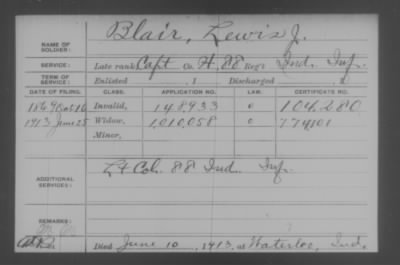 NAME OF SOLDIER: Blair, Lewis J.
SERVICE: Late rank Capt Co. H, 88 Reg't Ind. Inf.
TERM OF SERVICE: Enlisted , 1 Discharged , 1
DATE OF FILING. CLASS. APPLICATION NO. LAW. CERTIFICATE NO.
1869 Oct 16 Invalid, 148,933 0 104,280
1913 June 25 Widow, 1,010,058 0 774101
Minor,
ADDITIONAL SERVICES: Lt Col. 88 Ind. Inf.
REMARKS:
Died June 10, 1913, at Waterloo, Ind.